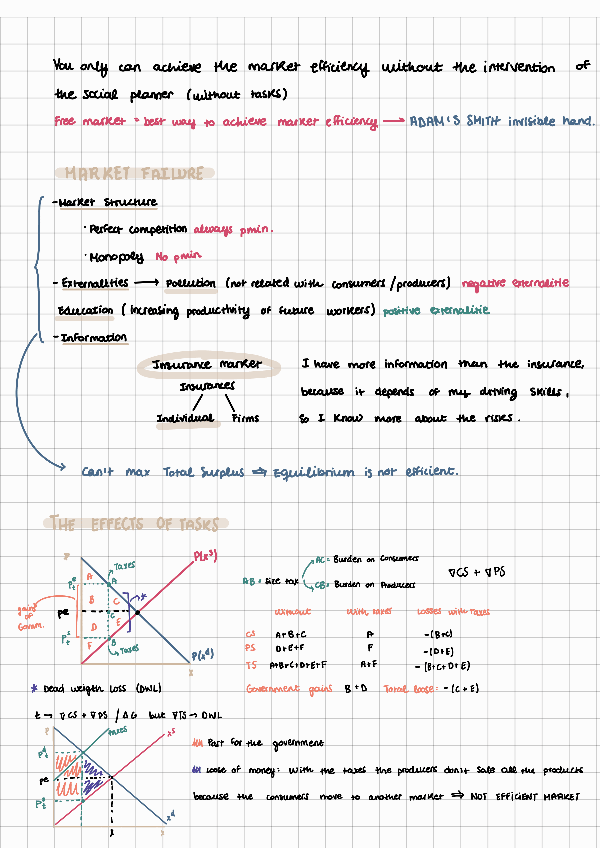 You only can achieve the market efficiency without the intervention of
the social planner (without tasks)
Free market = best way to achieve market efficiency → ADAM'S SMITH invisible hand.
MARKET FAILURE
- Market Structure
· Perfect competition always pmin.
· Monopoly No pmin
- Externalities → Pollution (not related with consumers/producers) negative externalitie
Education (Increasing productivity of future workers) positive externalitie
- Information
Insurance market
Insurances
Individual Firms
I have more information than the insurance,
because it depends of my driving skills,
so I know more about the risks.
Can't max Total Surplus ⇒ Equilibrium is not efficient.
THE EFFECTS OF TASKS
P
Taxes
P(x^s)
A
A
B
C
*
pe
C
D
E
F
B
Taxes
P(x^d)
x
gains of Govern.
AB = Size tax
AC = Burden on Consumers
CB = Burden on Producers
∇CS + ∇PS
Without With Taxes Losses with Taxes
CS A+B+C A -(B+C)
PS D+E+F F -(D+E)
TS A+B+C+D+E+F A+F -(B+C+D+E)
Government gains B+D Total loose: -(C+E)
* Dead weigth Loss (DWL)
t → ∇CS + ∇PS / ΔG but ∇TS → DWL
P
taxes
x^s
pe
x^d
Part for the government
Loose of money: With the taxes the producers don't sale all the products
because the consumers move to another market ⇒ NOT EFFICIENT MARKET